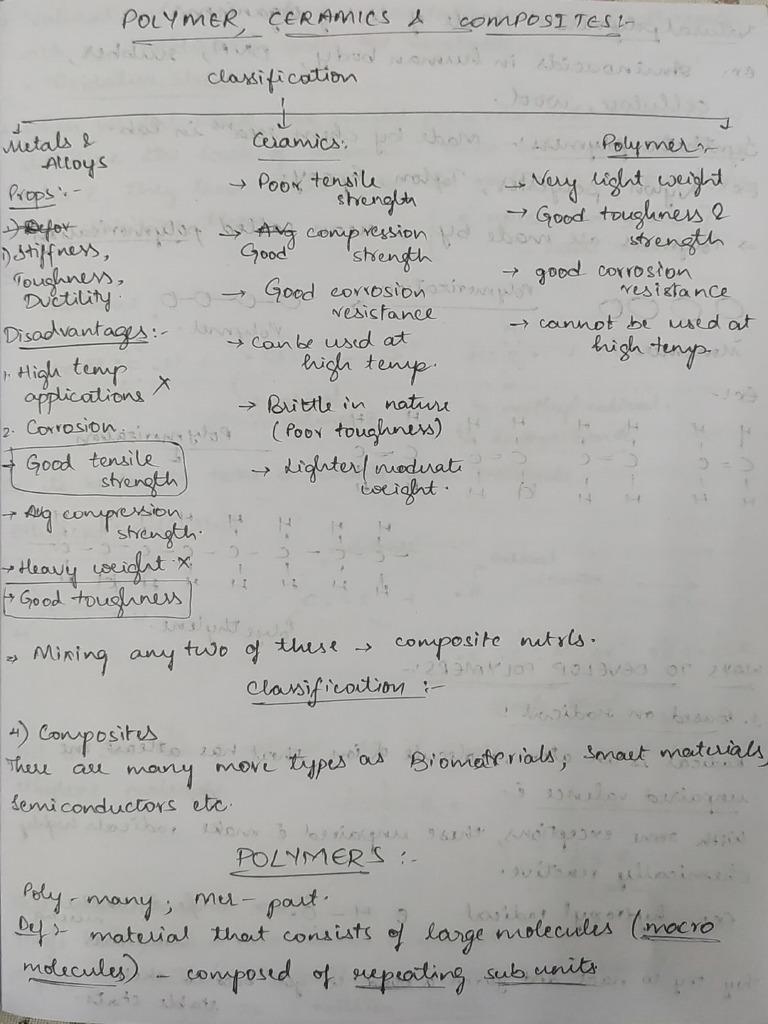 POLYMER, CERAMICS & COMPOSITES:-
Classification
Metals &
Alloys
Props:-
1) Stiffness,
Toughness,
Ductility.
Disadvantages:-
1. High temp
applications X
2. Corrosion.
→ Good tensile
strength
→ Avg compression
strength.
→ Heavy weight X
→ Good toughness
Ceramics:
→ Poor tensile
strength
→ Avg compression
Good strength
→ Good corrosion
resistance
→ Can be used at
high temp.
→ Brittle in nature
(Poor toughness)
→ Lighter/moderate
weight.
Polymer:-
→ Very light weight
→ Good toughness &
strength
→ good corrosion
resistance
→ cannot be used at
high temp.
⇒ Mixing any two of these → composite mtrls.
Classification :-
4) Composites
There are many more types as Biomaterials, Smart materials,
Semiconductors etc.
POLYMERS :-
Poly - many ; mer - part.
Def:- material that consists of large molecules (macro
molecules) - composed of repeating sub units